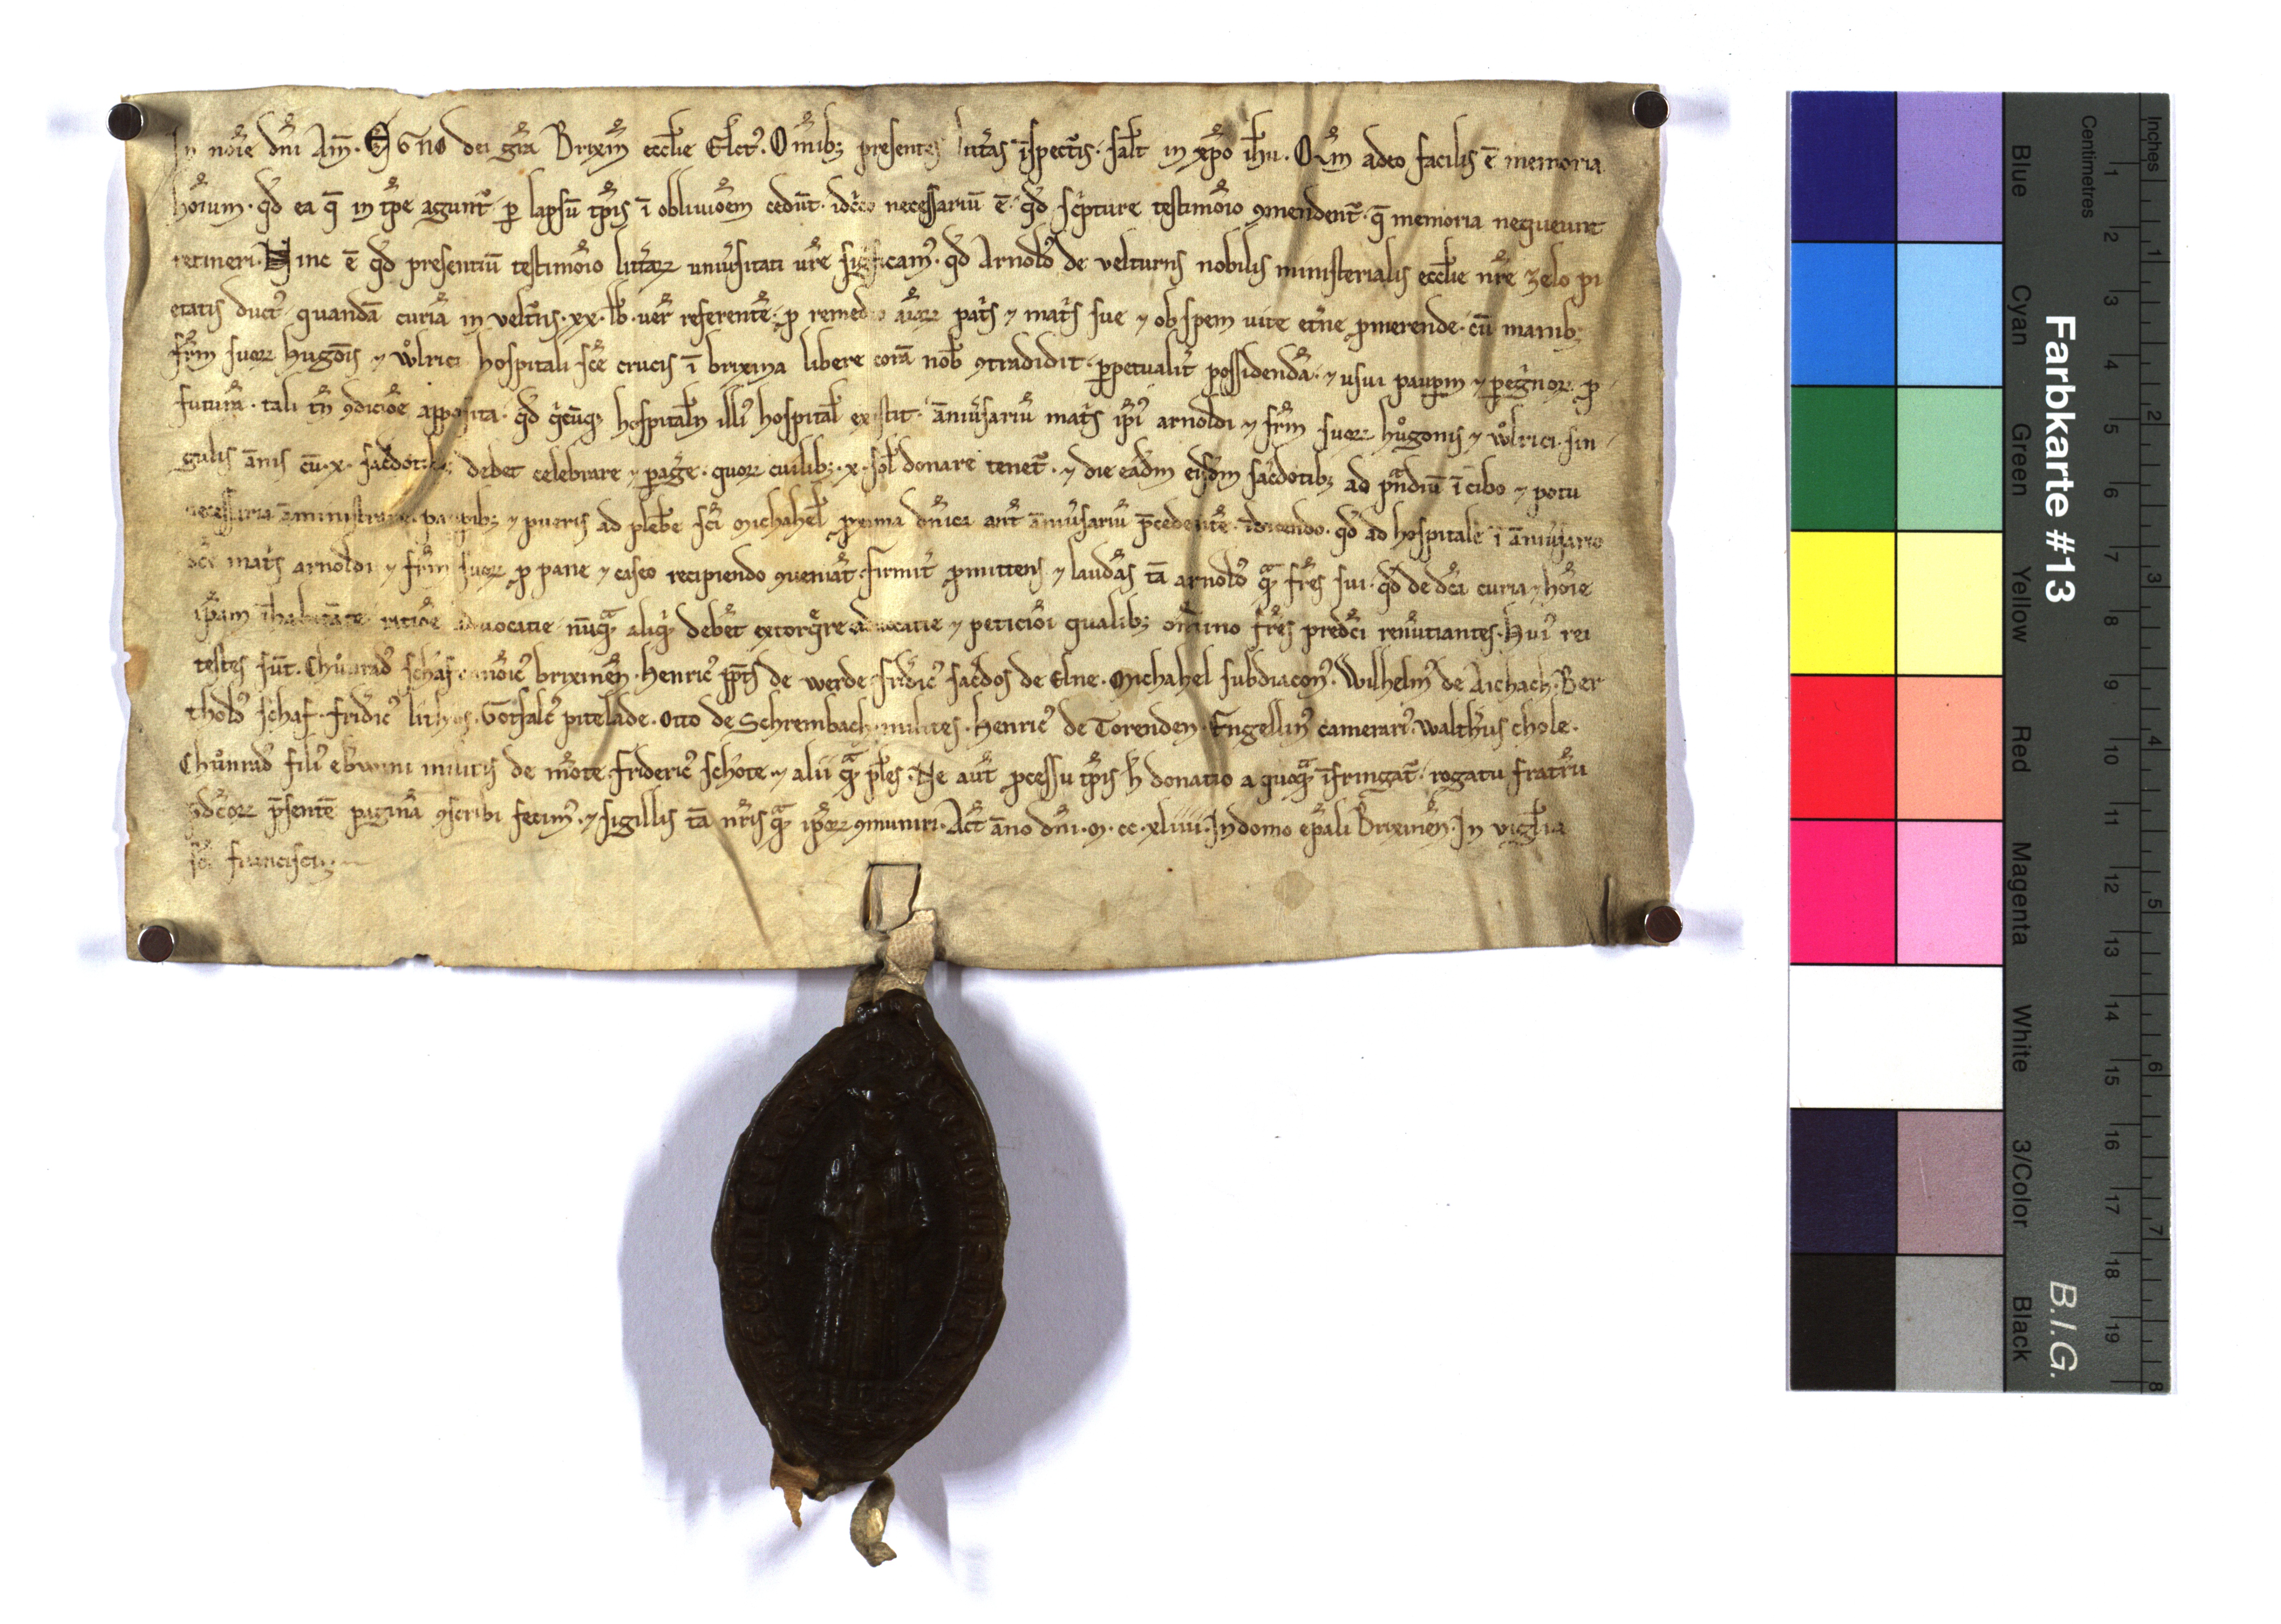 In nőie dn̄i Am̄. EGNO dei gr̄a Brixin̄ eccl̄ie Elc̄t᾽. Om̄ibꝫ presentes litt̄as īspectur̄is. sal̄t in xp̄o ih̄u. Qm̄ adeo facilis ē memoria
hōium. qd̄ ea q̄ in tp̄e agunt᷑ ꝑ lapsū tp̄is ī obliuiōem cedūt. idc̄co necessariū ē. qd̄ sc̄pture testimōio ꝯmendent᷑. q̄ memoria nequeunt
retineri. Hinc ē qd̄ presentiū testimōio litt̄aꝝ uniūsitati ur̄e significam᾽. qd̄ Arnold᾽ de velturns nobilis ministerialis eccl̄ie nr̄e zelo pi
etatis duct᾽ quandā curiā in velt᷑ns .xx. lb̄. uer̄ referentē. ꝓ remedio aīaꝝ pat̄s ⁊ mat̄s sue ⁊ ob spem uite et̄ne ꝓmerende. cū manibꝫ
fr̄m suoꝝ hugōis ⁊ vͦlrici hospitali sc̄e crucis ī brixina libere corā nob̄ ꝯtradidit. ꝑpetualit̄ possidendā. ⁊ usui pauꝑm ⁊ ꝑeg̓noꝝ. ꝓ
futurā. tali tn̄ ꝯdiciōe apposita. qd̄ q̓cūqꝫ hospitalīn illi᾽ hospital̄ exstit᷑. āniūsariū mat̄s ip̄i᾽ arnoldi ⁊ fr̄m suoꝝ huͦgonis ⁊ vͦlrici. sin
gulis ānis cū .x. sac̄dotibꝫ debet celebrare ⁊ ꝑag̓e. quoꝝ cuilibꝫ .x. sol̄ donare tenet᷑. ⁊ die eadm̄ eisdm̄ sac̄dotibꝫ ad pn̄diū ī cibo ⁊ potu
necessaria āministrare. pauꝑibꝫ ⁊ pueris ad plebē sc̄i Michahel̄ ꝓxima dn̄ica ant̄ āniūsariū p̄cedentē. īdicendo. qd̄ ad hospitale ī āniūsario
dc̄e mat̄s arnoldi ⁊ fr̄m suoꝝ ꝓ pane ⁊ caseo recipiendo ꝯueniāt. firmit̄ ꝓmittens ⁊ laudās tā arnold᾽ qͣꝫ fr̄es sui. qd̄ de dc̄a curia ⁊ hōie
ip̄am īhabitāte ratiōe aduocatie nūqͣꝫ aliq̓d debēt extorq̓re aduocatie ⁊ peticiōi qualibꝫ om̄ino fr̄es predc̄i renūtiantes. Hui᾽ rei
testes sūt. Chuͦnrad᾽ schaf canōic᾽ brixinēn. Henric᾽ pp̄ts de werde. fridic᾽ sac̄dos de Elne. Michahel subdiacon᾽. Wilhelm᾽ de Aichach. Ber
thold᾽ schaf. fridic᾽ lithos. Gotsalc᾽ pitelade. Otto de Schrembach. milites. Henric᾽ de Torenden. Engellin᾽ camerari᾽. Walth᾽us chole.
Chuͦnrad᾽ fili᾽ ebwini militis de mōte. frideric᾽ schote. ⁊ alii qͣꝫ pl̄es. Ne aut̄ ꝓcessu tp̄is h̄ donatio a quoqͣꝫ īfringat᷑. rogatu fratrū
p̄dc̄oꝝ p̄sentē paginā ꝯscribi fecim᾽. ⁊ sigillis tā nr̄is qͣꝫ ip̄oꝝ ꝯmuniri. Act̄ āno dn̄i .m. cc. xliiii. In domo ep̄ali Brixinēn. In vigl̄ia
sc̄i francisci.
Farbkarte #13
B.I.G.
Centimetres
Inches
Blue
Cyan
Green
Yellow
Red
Magenta
White
3/Color
Black
1 2 3 4 5 6 7 8 9 10 11 12 13 14 15 16 17 18 19
1 2 3 4 5 6 7 8